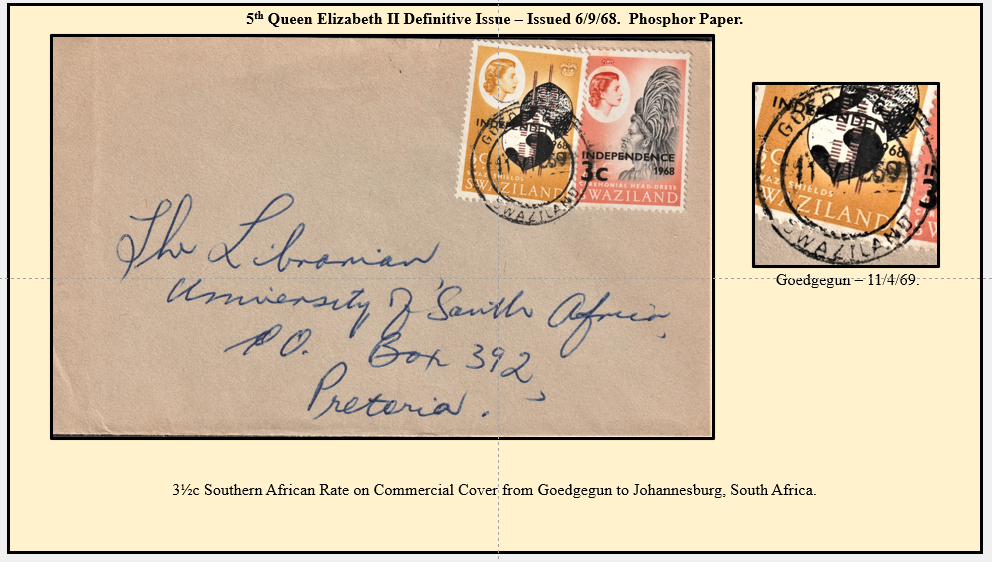 5th Queen Elizabeth II Definitive Issue – Issued 6/9/68.  Phosphor Paper.
INDEPENDENCE
1968
SWAZILAND
INDEPENDENCE
3c 1968
CEREMONIAL HEAD-DRESS
SWAZILAND
SWAZILAND
The Librarian
University of South Africa,
P.O. Box 392,
Pretoria.
SHIELDS
SWAZILAND
SWAZILAND
Goedgegun – 11/4/69.
3½c Southern African Rate on Commercial Cover from Goedgegun to Johannesburg, South Africa.